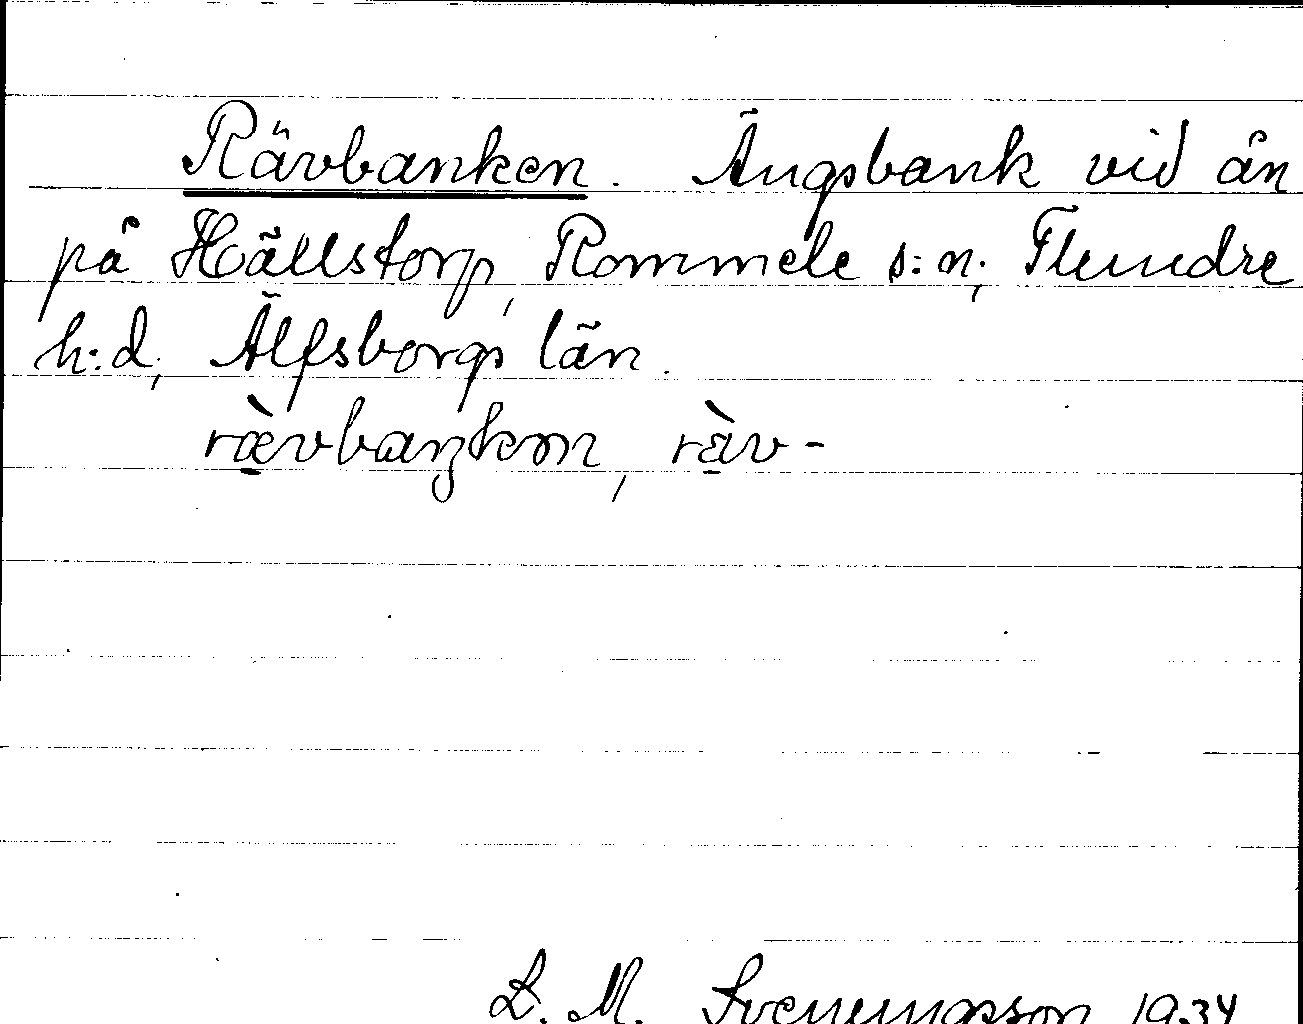 Rävbanken. Ängsbank vid ån
på Hällstorp, Rommele s:n, Flundre
h:d, Älfsborgs län.
ræ̀vbaŋkən, rὰv-
L. M. Svenungsson 1934